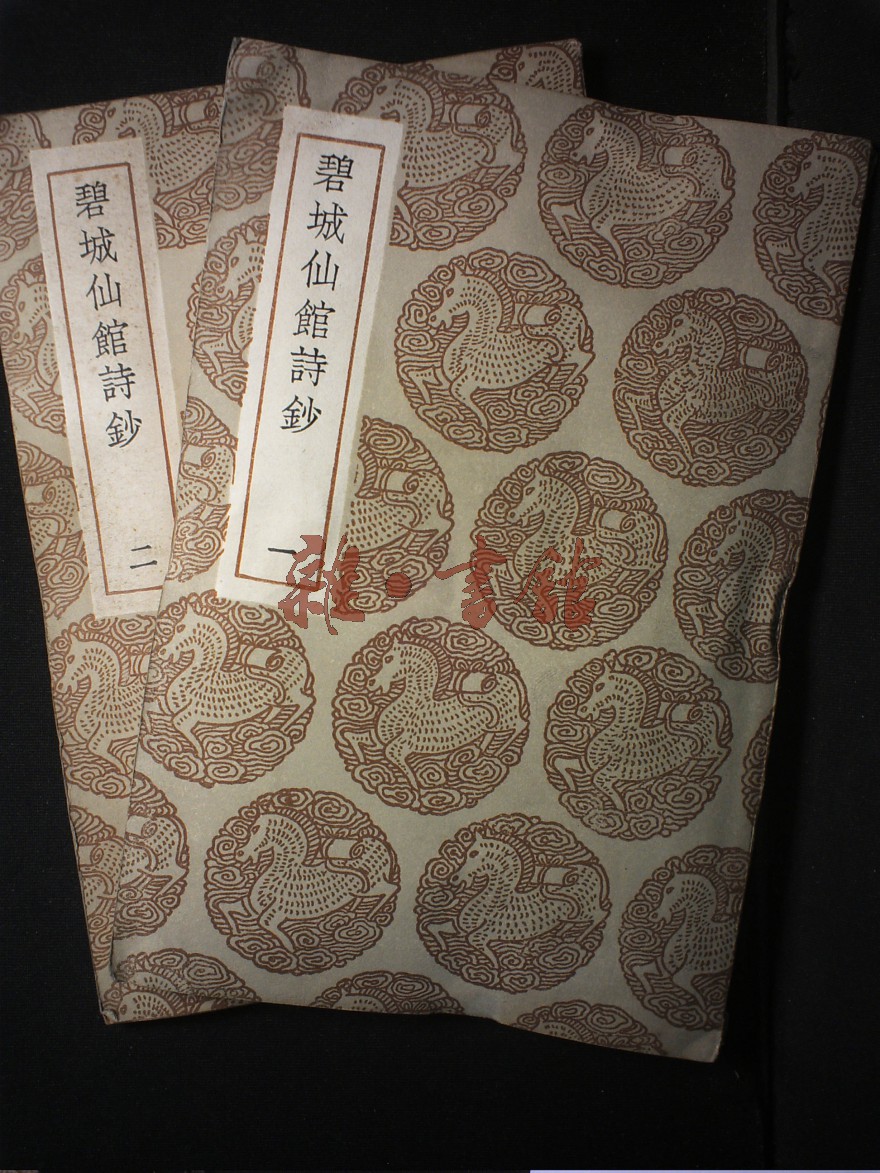 碧城仙館詩鈔
二
碧城仙館詩鈔
一
雜·書館